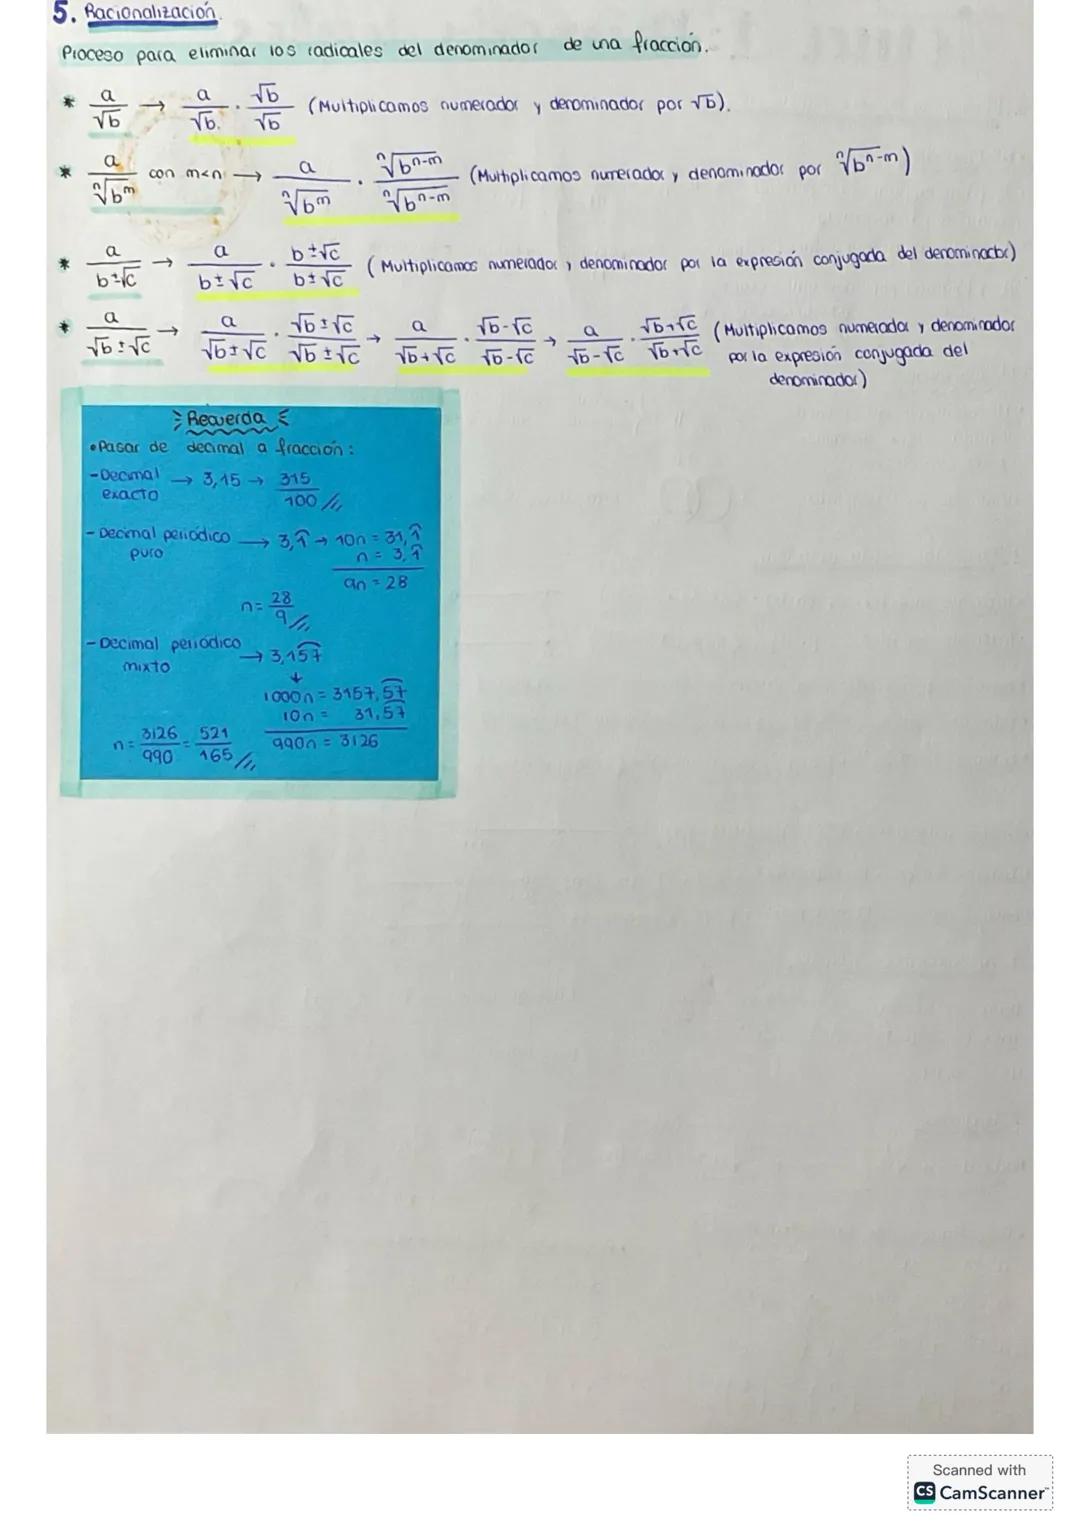 5. Racionalización.
Proceso para eliminar los radicales del denominador de una fracción.
* a/√b → a/√b. · √b/√b (Multiplicamos numerador y denominador por √b).
* a/ⁿ√bᵐ con m<n → a/ⁿ√bᵐ · ⁿ√bⁿ⁻ᵐ/ⁿ√bⁿ⁻ᵐ (Multiplicamos numerador y denominador por ⁿ√bⁿ⁻ᵐ)
* a/b±√c → a/b±√c · b±√c/b±√c (Multiplicamos numerador y denominador por la expresión conjugada del denominador)
* a/√b±√c → a/√b±√c · √b±√c/√b±√c → a/√b+√c · √b-√c/√b-√c → a/√b-√c · √b+√c/√b+√c (Multiplicamos numerador y denominador
por la expresión conjugada del
denominador)
Recuerda
• Pasar de decimal a fracción:
- Decimal exacto → 3,15 → 315/100 //,
- Decimal periódico puro → 3,1̂ → 10n = 31,1̂
n = 3,1̂
9n = 28
n = 28/9 //,
- Decimal periódico mixto → 3,15͡7
↓
1000n = 3157,5͡7
10n = 31,5͡7
990n = 3126
n = 3126/990 = 521/165 //,
Scanned with
CS CamScanner™